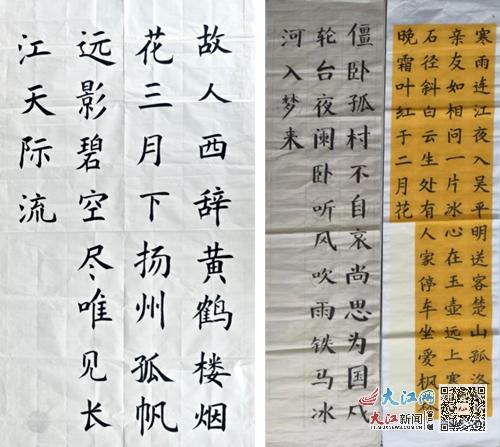 故人西辞黄鹤楼烟
花三月下扬州孤帆
远影碧空尽唯见长
江天际流
僵卧孤村不自哀尚思为国戍
轮台夜阑卧听风吹雨铁马冰
河入梦来
寒雨连江夜入吴平明送客楚山孤洛
亲友如相问一片冰心在玉壶远上寒
石径斜白云生处有人家停车坐爱枫林
晚霜叶红于二月花
大江网
大江新闻